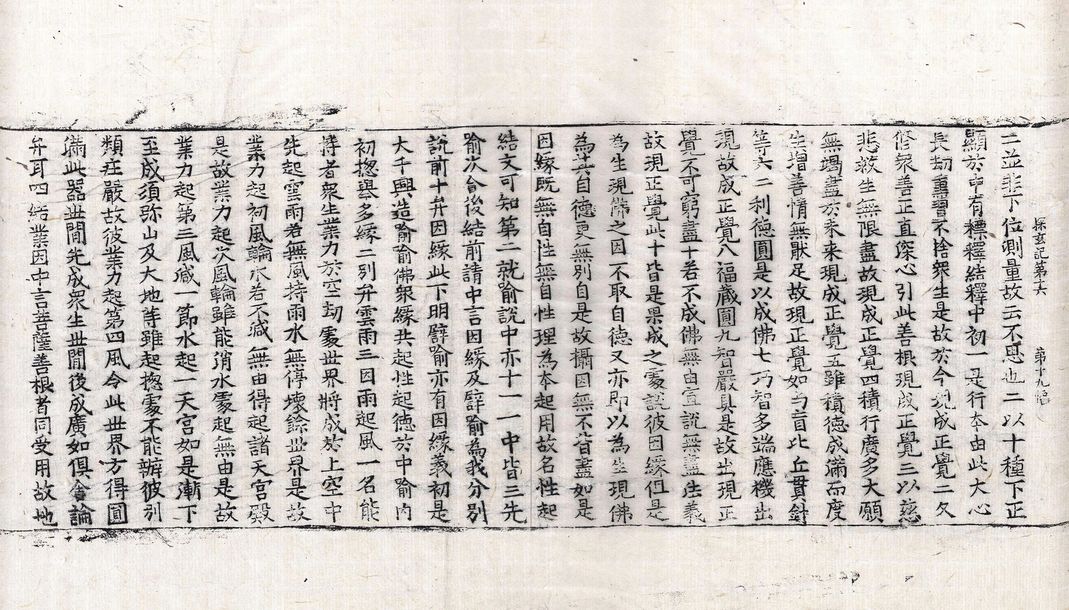 探玄記第十六 第十九幅
二並非下位測量故云不思也二以十種下正
顯於中有標釋結釋中初一是行本由此大心
長劫熏習不捨衆生是故於今現成正覺二久
修衆善正直深心引此善根現成正覺三以慈
悲救生無限盡故現成正覺四積行廣多大願
無竭盡於未来現成正覺五雖積德成滿而度
生增善情無猒足故現正覺如盲比丘貫針
等六二利德圓是以成佛七巧智多端應機出
現故成正覺八福藏圓九智嚴具是故出現正
覺不可窮盡十若不成佛無由宣說無盡法義
故現正覺此十皆是果成之處說彼因緣但是
為生現佛之因不取自德又亦即以為生現佛
為其自德更無別自是故攝因無不皆盡如是
因緣既無自性無自性理為本起用故名性起
結文可知第二就喻說中亦十一一中皆三先
喻次合後結前請中言因緣及譬喻為我分別
說前十弁因緣此下明譬喻亦有因緣義初是
大千興造喻喻佛衆緣共起性起德於中喻內
初揔舉多緣二別弁雲雨三因雨起風一名能
持者衆生業力於空劫處世界將成於上空中
先起雲雨若無風持雨水無停壞餘世界是故
業力起初風輪水若不减無由得起諸天宮殿
是故業力起次風輪雖能消水處起無由是故
業力起第三風减一節水起一天宮如是漸下
至成須弥山及大地等雖起揔處不能辨彼別
類庄嚴故彼業力起第四風令此世界方得圓
滿此器世間先成衆生世間後成廣如俱舍論
弁耳四結業因中言菩薩善根者同受用故地